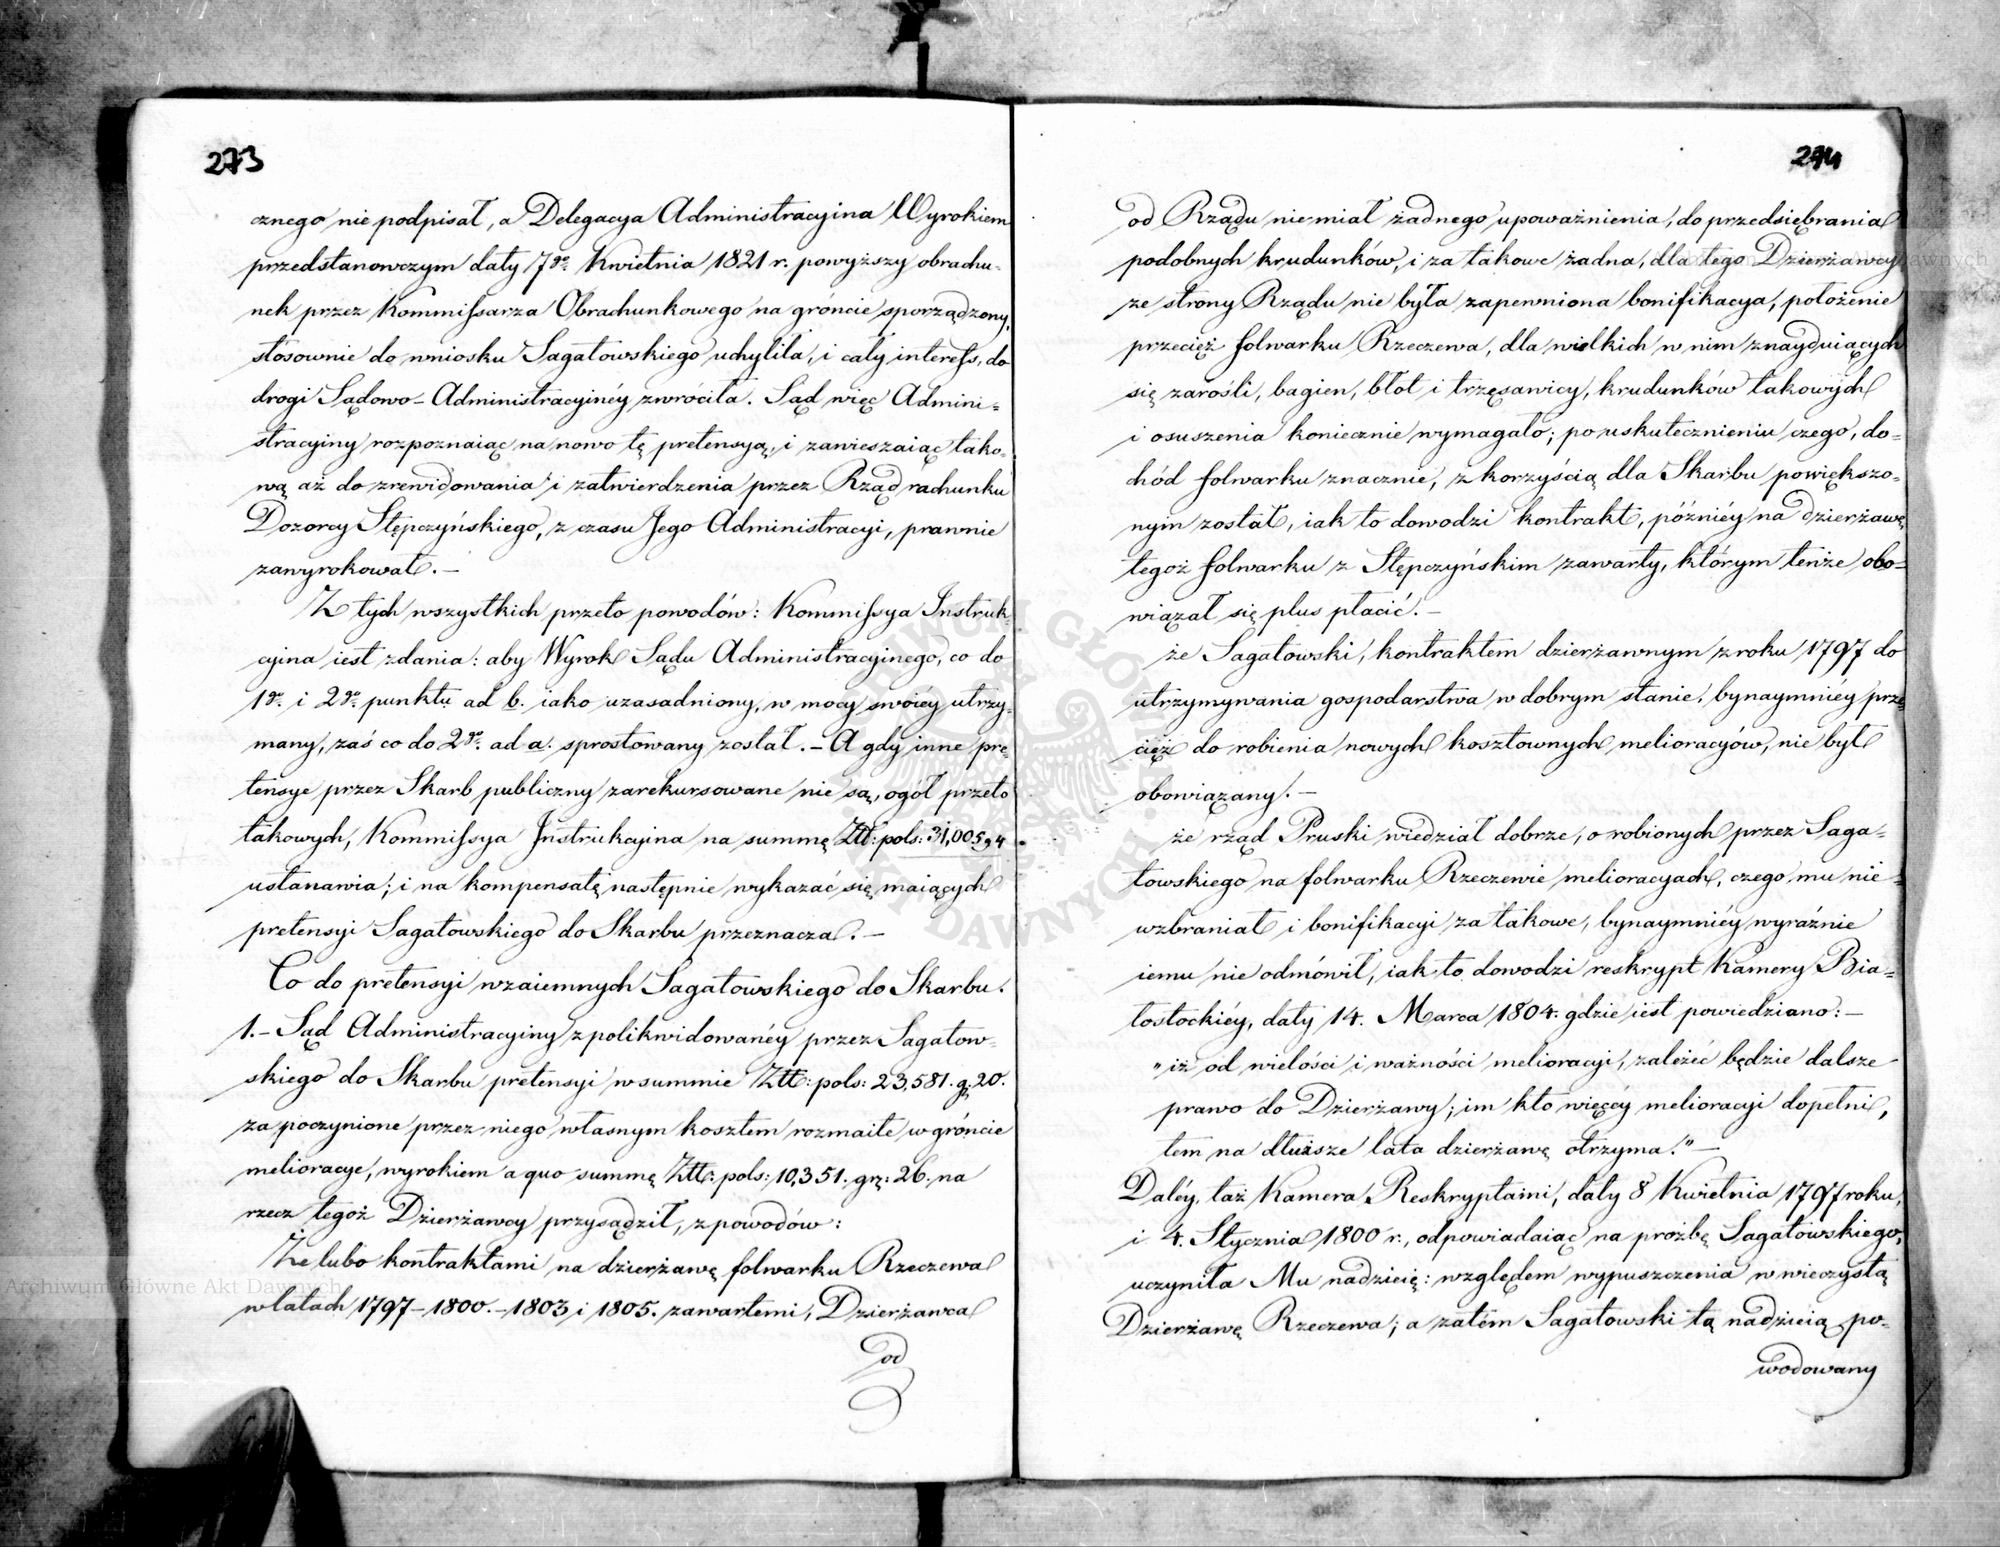 273
cznego nie podpisał, a Delegacya Administracyina Wyrokiem
przedstanowczym daty 7go Kwietnia 1821 r. powyższy obrachu-
nek przez Kommissarza Obrachunkowego na gróncie sporządzony,
stósownie do wniosku Sagatowskiego uchyliła, i cały interess, do
drogi Sądowo-Administracyinéy zwrociła. Sąd więc Admini-
stracyiny rozpoznaiąc na nowo tę pretensyą, i zawieszaiąc tako-
wą aż do zrewidowania i zatwierdzenia przez Rząd rachunku
Dozorcy Stępczyńskiego, z czasu Jego Administracyi, prawnie
zawyrokował. —
Z tych wszystkich przeto powodów: Kommissya Instruk-
cyina iest zdania: aby Wyrok Sądu Administracyinego, co do
1go i 2go punktu ad b. iako uzasadniony, w mocy swoiéy utrzy-
many, zaś co do 2go ad a. sprostowany został. — A gdy inne pre-
tensye przez Skarb publiczny zarekursowane nie są, ogół przeto
takowych, Kommissya Instrukcyina na summę Złt: pols: 31,005, 4
ustanawia; i na kompensatę następnie wykazać się maiących
pretensyi Sagatowskiego do Skarbu przeznacza. —
Co do pretensyi wzaiemnych Sagatowskiego do Skarbu.
1. — Sąd Administracyiny z polikwidowanéy przez Sagatow-
skiego do Skarbu pretensyi w summie Złt: pols: 23,581. gr. 20.
za poczynione przez niego własnym kosztem rozmaite w gróncie
melioracye, wyrokiem a quo summę Złt: pols: 10,351. gr: 26. na
rzecz tegoż Dzierżawcy przysądził, z powodów:
Że lubo kontraktami na dzierżawę folwarku Rzeczewa
w latach 1797 — 1800. — 1803 i 1805. zawartemi, Dzierżawca
od
274
od Rządu nie miał żadnego upoważnienia, do przedsiębrania
podobnych krudunków, i za takowe żadna, dla tego Dzierżawcy
ze strony Rządu nie była zapewniona bonifikacya, położenie
przecięż folwarku Rzeczewa, dla wielkich w nim znayduiących
się zarośli, bagien, błot i trzęsawicy, krudunków takowych
i osuszenia koniecznie wymagało; po uskutecznieniu czego, do-
chód folwarku znacznie, z korzyścią dla Skarbu powiększo-
nym został, iak to dowodzi kontrakt, późniéy na dzierżawę
tegoż folwarku z Stępczyńskim zawarty, którym tenże obo-
wiązał się plus płacić. —
że Sagatowski, kontraktem dzierżawnym z roku 1797 do
utrzymywania gospodarstwa w dobrym stanie, bynaymniéy prze-
cięż do robienia nowych kosztownych melioracyów, nie był
obowiązany. —
że rząd Pruski wiedział dobrze, o robionych przez Saga-
towskiego na folwarku Rzeczewie melioracyach, czego mu nie-
wzbraniał i bonifikacyi za takowe, bynaymniéy wyraźnie
iemu nie odmówił, iak to dowodzi reskrypt Kamery Bia-
łostockiéy, daty 14. Marca 1804. gdzie iest powiedziano: —
„iż od wielości i ważności melioracyi, zależeć będzie dalsze
prawo do Dzierżawy; im kto więcéy melioracyi dopełni,
tem na dłuższe lata dzierżawę otrzyma." —
Daléy, taż Kamera Reskryptami, daty 8 Kwietnia 1797 roku,
i 4. Stycznia 1800 r., odpowiadaiąc na proźbę Sagatowskiego,
uczyniła Mu nadzieię: względem wypuszczenia w wieczystą
Dzierżawę Rzeczewa; a zatém Sagatowski tą nadzieią po-
wodowany
ARCHIWUM GŁÓWNE AKT DAWNYCH
Archiwum Główne Akt Dawnych